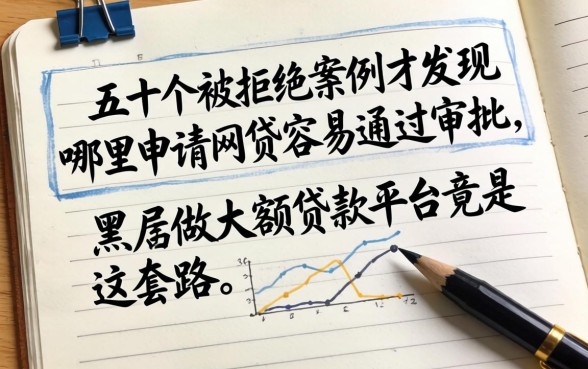 五十个被拒绝案例才发现
哪里申请网贷容易通过审批，
黑居做大额贷款平台竟是
这套路。